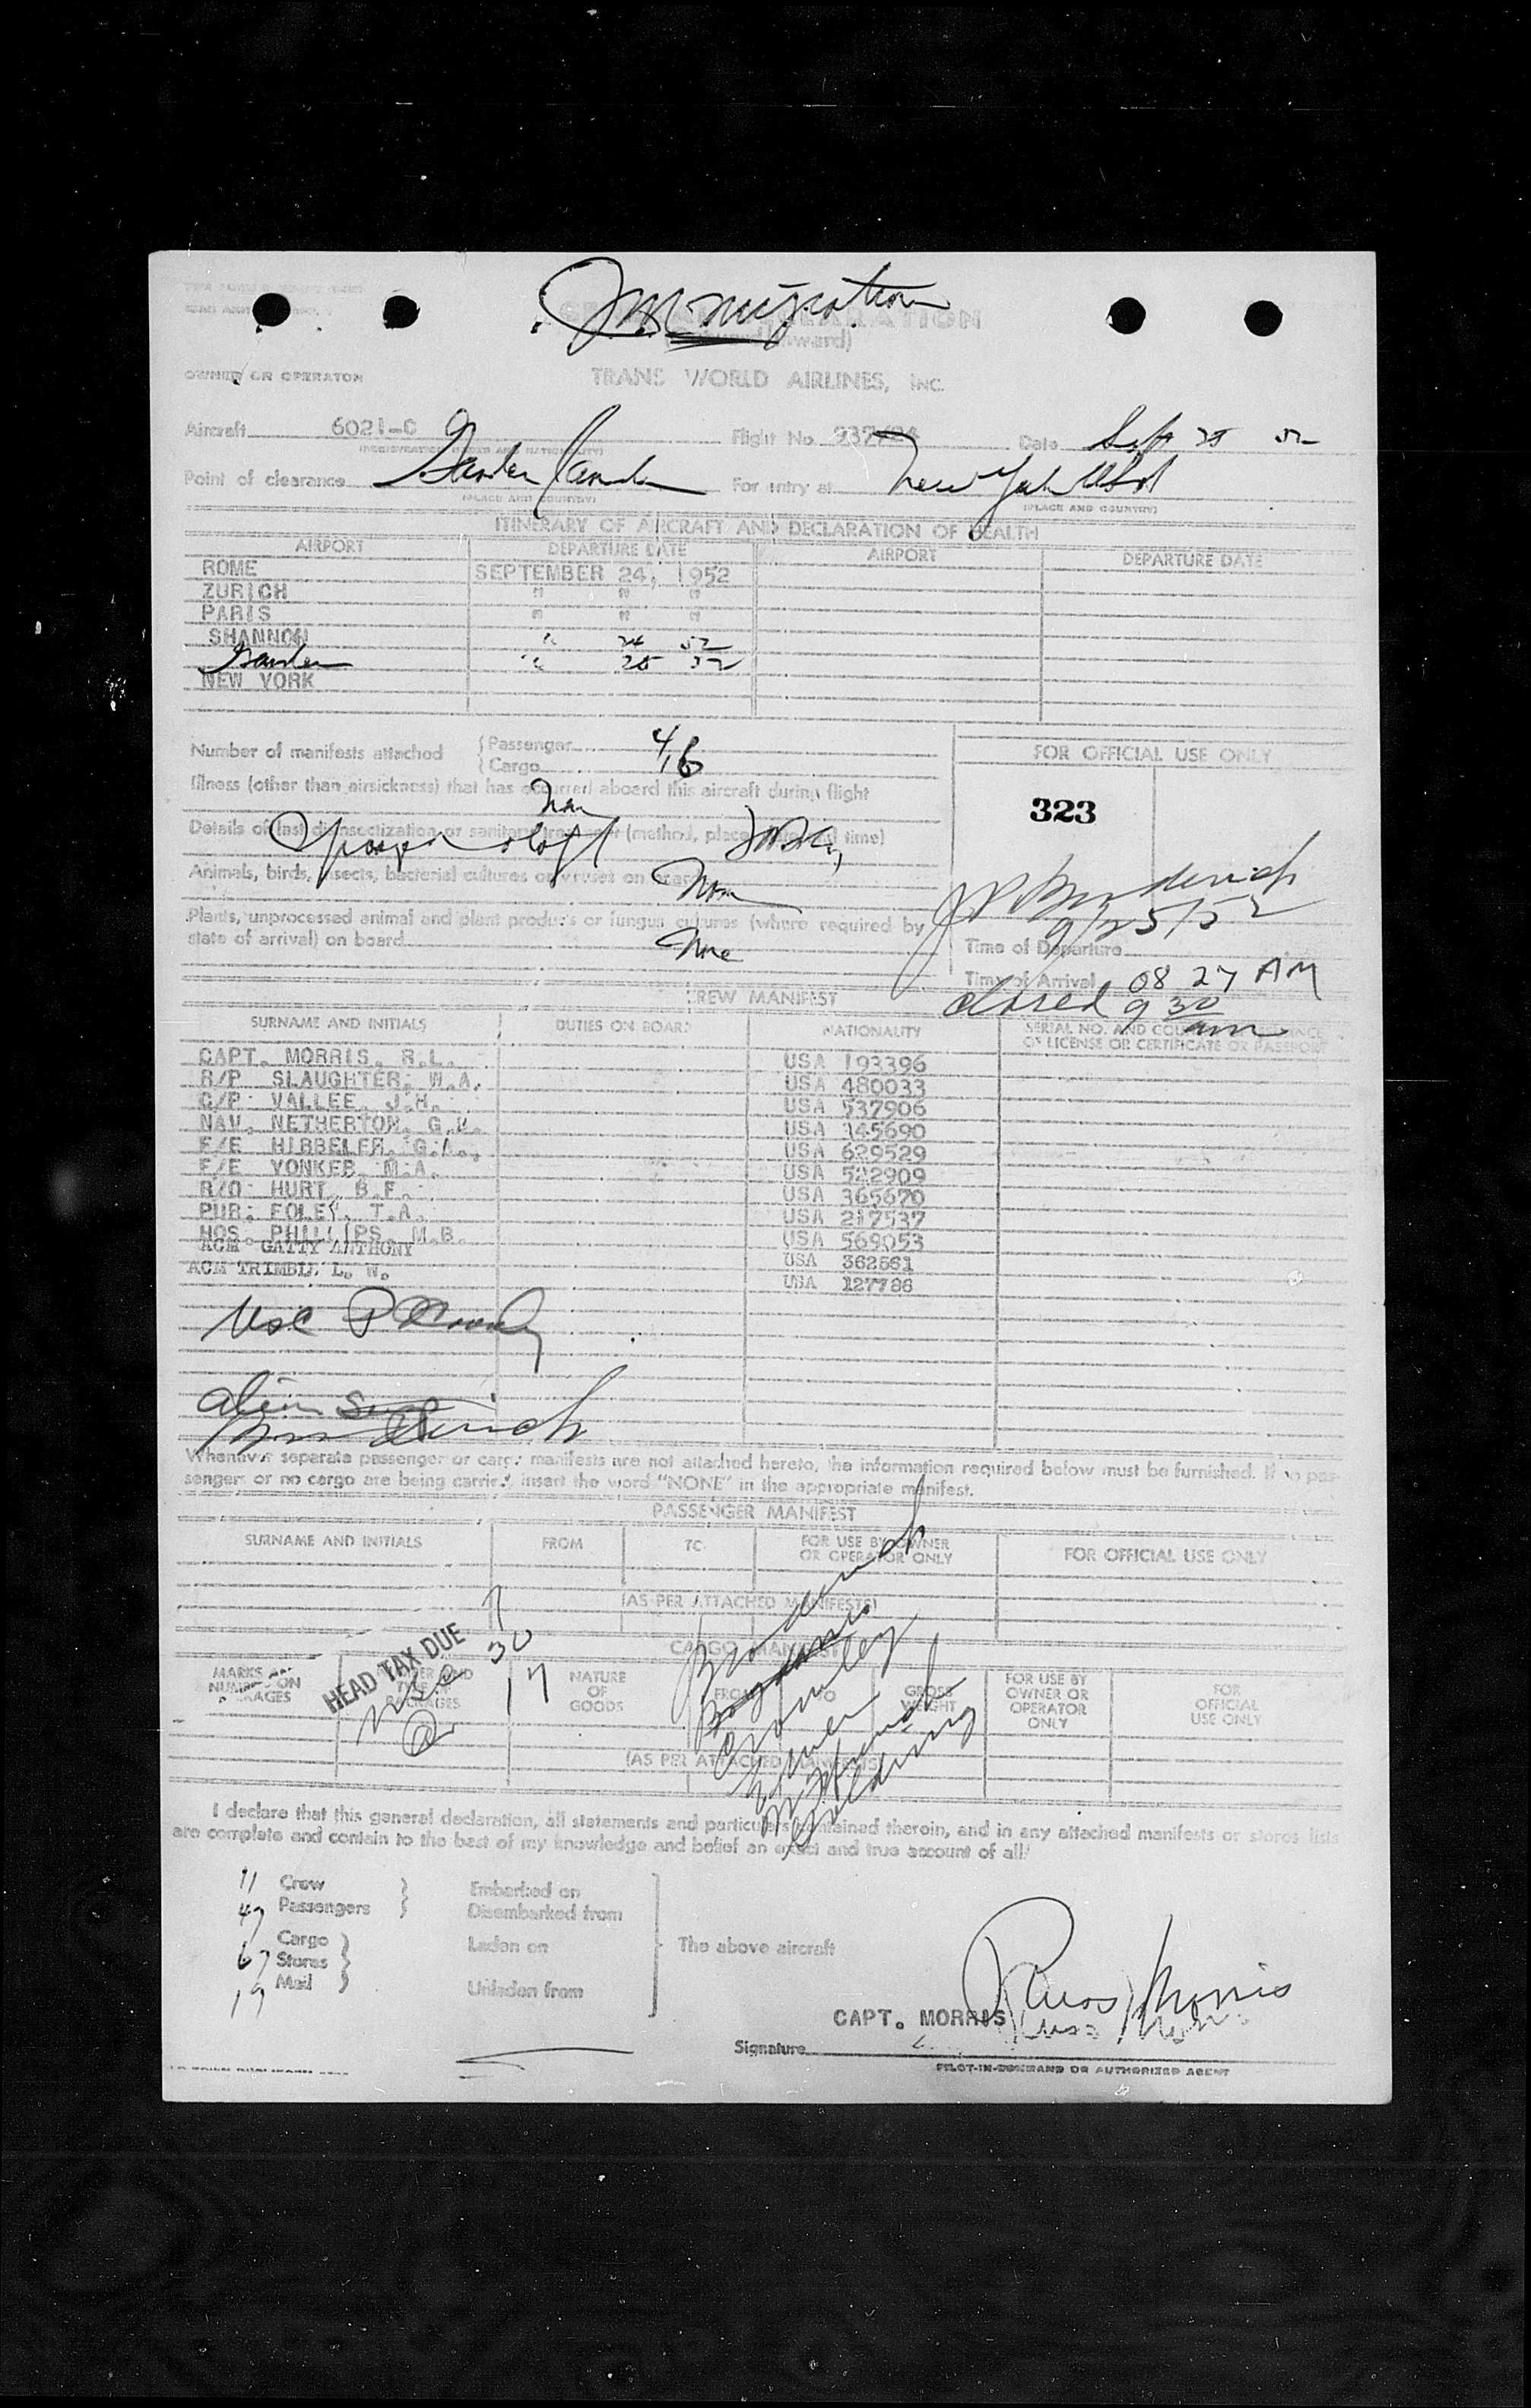 Immigration
GENERAL DECLARATION
(Outward/Inward)
OWNER OR OPERATOR TRANS WORLD AIRLINES, INC.
Aircraft 6021-C Flight No. 937/24 Date Sept 25 52
(REGISTRATION MARKS AND NATIONALITY)
Point of clearance Gander Canada For entry at New York USA
(PLACE AND COUNTRY) (PLACE AND COUNTRY)
ITINERARY OF AIRCRAFT AND DECLARATION OF HEALTH
AIRPORT DEPARTURE DATE AIRPORT DEPARTURE DATE
ROME SEPTEMBER 24, 1952
ZURICH " " "
PARIS " " "
SHANNON " 24 52
Gander " 25 52
NEW YORK
Number of manifests attached Passenger 4
Cargo 16
FOR OFFICIAL USE ONLY
323
Illness (other than airsickness) that has occurred aboard this aircraft during flight
Details of last disinsectization or sanitary treatment (method, place, date and time)
Animals, birds, insects, bacterial cultures or viruses on board None
Plants, unprocessed animal and plant products or fungus cultures (where required by
state of arrival) on board None
9/25/52
Time of Departure
Time of Arrival 08 27 AM
closed 9 30 am
CREW MANIFEST
SURNAME AND INITIALS DUTIES ON BOARD NATIONALITY SERIAL NO. AND COUNTRY OF ISSUANCE
OF LICENSE OR CERTIFICATE OR PASSPORT
CAPT. MORRIS, R.L. USA 193396
R/P SLAUGHTER, W.A. USA 480033
C/P VALLEE, J.H. USA 537906
NAV. NETHERTON, G. USA 145690
F/E HIBBELER, G.A. USA 629529
F/E YONKER, M.A. USA 522909
R/O HURT, B.F. USA 365670
PUR. FOLEY, T.A. USA 217537
HOS. PHILLIPS, M.B. USA 569053
ACM GATTY ANTHONY USA 362561
ACM TRIMBLE L. W. USA 127786
USC
Broderick
Whenever separate passenger or cargo manifests are not attached hereto, the information required below must be furnished. If no pas-
sengers or no cargo are being carried, insert the word "NONE" in the appropriate manifest.
PASSENGER MANIFEST
SURNAME AND INITIALS FROM TO FOR USE BY OWNER OR OPERATOR ONLY FOR OFFICIAL USE ONLY
(AS PER ATTACHED MANIFESTS)
HEAD TAX DUE 7
USC 30
17
Broderick
Gormley
Golding
CARGO MANIFEST
MARKS AND NUMBERS ON PACKAGES NUMBER AND TYPE OF PACKAGES NATURE OF GOODS FROM TO GROSS WEIGHT FOR USE BY OWNER OR OPERATOR ONLY FOR OFFICIAL USE ONLY
(AS PER ATTACHED MANIFESTS)
I declare that this general declaration, all statements and particulars contained therein, and in any attached manifests or stores lists
are complete and contain to the best of my knowledge and belief an exact and true account of all:
11 Crew Embarked on
47 Passengers Disembarked from
Cargo Laden on The above aircraft
67 Stores
19 Mail Unladen from
CAPT. MORRIS
Signature
PILOT-IN-COMMAND OR AUTHORIZED AGENT